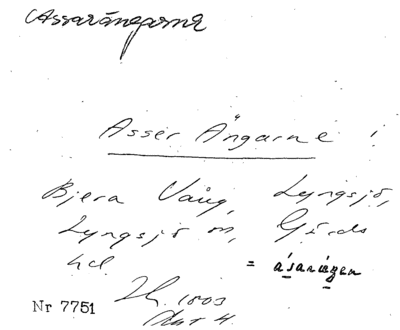 Assarängarne
Asser Ängarne
Bjera Vång, Lyngsjö,
Lyngsjö sn, Gärds
hd.
= ásaräŋen
Nr 7751
Lh. 1803
Akt 4